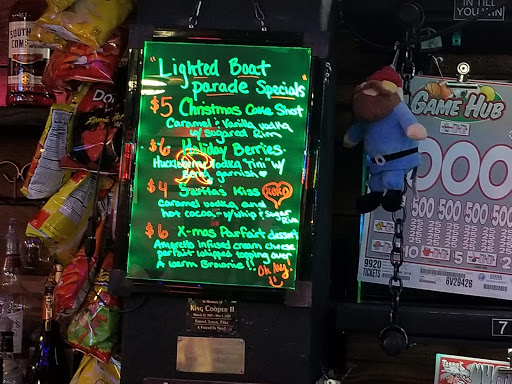 SOUTH
COM
IN TILL
YOU WIN
"Lighted Boat
parade Specials
$5 Christmas Cake Shot
Caramel & Vanilla vodka
w/ sugared Rim
$6 Holiday Berries
Huckleberry Vodka 'Tini' w/
Berry garnish
$4 Santa's Kiss XOXO
caramel vodka and
hot cocoa - w/ whip & sugar
Rim
$6 X-mas Parfait dessert
Amaretto infused cream cheese
parfait whipped topping over
A warm Brownie!!
Oh my!
In Memory of
King Cooper II
GAME HUB
000
500 500 500 500
9920
TICKETS
6V29426
7